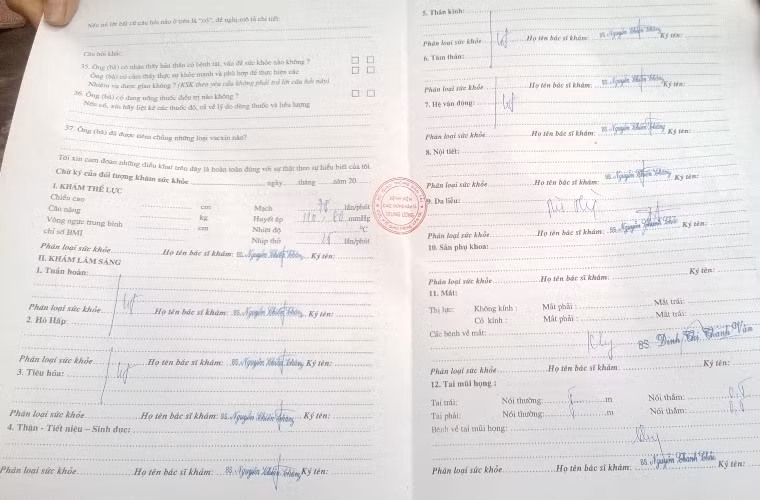 Nếu trả lời bất cứ câu hỏi nào ở trên là "có", đề nghị mô tả chi tiết:
Câu hỏi khác:
35. Ông (bà) có nhận thấy bản thân có bệnh tật, vấn đề sức khỏe nào không ?
Ông (bà) có cảm thấy thực sự khỏe mạnh và phù hợp để thực hiện các
Nhiệm vụ được giao không ? (KSK theo yêu cầu không phải trả lời câu hỏi này)
36. Ông (bà) có đang uống thuốc điều trị nào không ?
Nếu có, xin hãy liệt kê các thuốc đó, cả về lý do dùng thuốc và liều lượng
37. Ông (bà) đã được tiêm chủng những loại vacxin nào?
Tôi xin cam đoan những điều khai trên đây là hoàn toàn đúng với sự thật theo sự hiểu biết của tôi.
Chữ ký của đối tượng khám sức khỏe ngày tháng năm 20
I. KHÁM THỂ LỰC
Chiều cao cm Mạch 78 lần/phút
Cân nặng kg Huyết áp mmHg
Vòng ngực trung bình cm Nhiệt độ °C
chỉ số BMI Nhịp thở lần/phút
Phân loại sức khỏe Họ tên bác sĩ khám: BS. Nguyễn Ký tên:
II. KHÁM LÂM SÀNG
1. Tuần hoàn:
Phân loại sức khỏe Họ tên bác sĩ khám: BS. Nguyễn Ký tên:
2. Hô Hấp:
Phân loại sức khỏe Họ tên bác sĩ khám: BS. Nguyễn Ký tên:
3. Tiêu hóa:
Phân loại sức khỏe Họ tên bác sĩ khám: BS. Nguyễn Ký tên:
4. Thận - Tiết niệu – Sinh dục:
Phân loại sức khỏe Họ tên bác sĩ khám: BS. Nguyễn Ký tên:
5. Thần kinh:
Phân loại sức khỏe Họ tên bác sĩ khám: BS. Nguyễn Ký tên:
6. Tâm thần:
Phân loại sức khỏe Họ tên bác sĩ khám: BS. Nguyễn Ký tên:
7. Hệ vận động:
Phân loại sức khỏe Họ tên bác sĩ khám: BS. Nguyễn Ký tên:
8. Nội tiết:
Phân loại sức khỏe Họ tên bác sĩ khám: BS. Nguyễn Ký tên:
9. Da liễu:
Phân loại sức khỏe Họ tên bác sĩ khám: BS. Nguyễn Ký tên:
10. Sản phụ khoa:
Phân loại sức khỏe Họ tên bác sĩ khám: Ký tên:
11. Mắt:
Thị lực: Không kính : Mắt phải : Mắt trái:
Có kính : Mắt phải : Mắt trái:
Các bệnh về mắt:
BS. Đinh Thị Thanh Vân
Phân loại sức khỏe Họ tên bác sĩ khám: Ký tên:
12. Tai mũi họng :
Tai trái: Nói thường: m Nói thầm:
Tai phải: Nói thường: m Nói thầm:
Bệnh về tai mũi họng:
Phân loại sức khỏe Họ tên bác sĩ khám: BS. Nguyễn Ký tên: